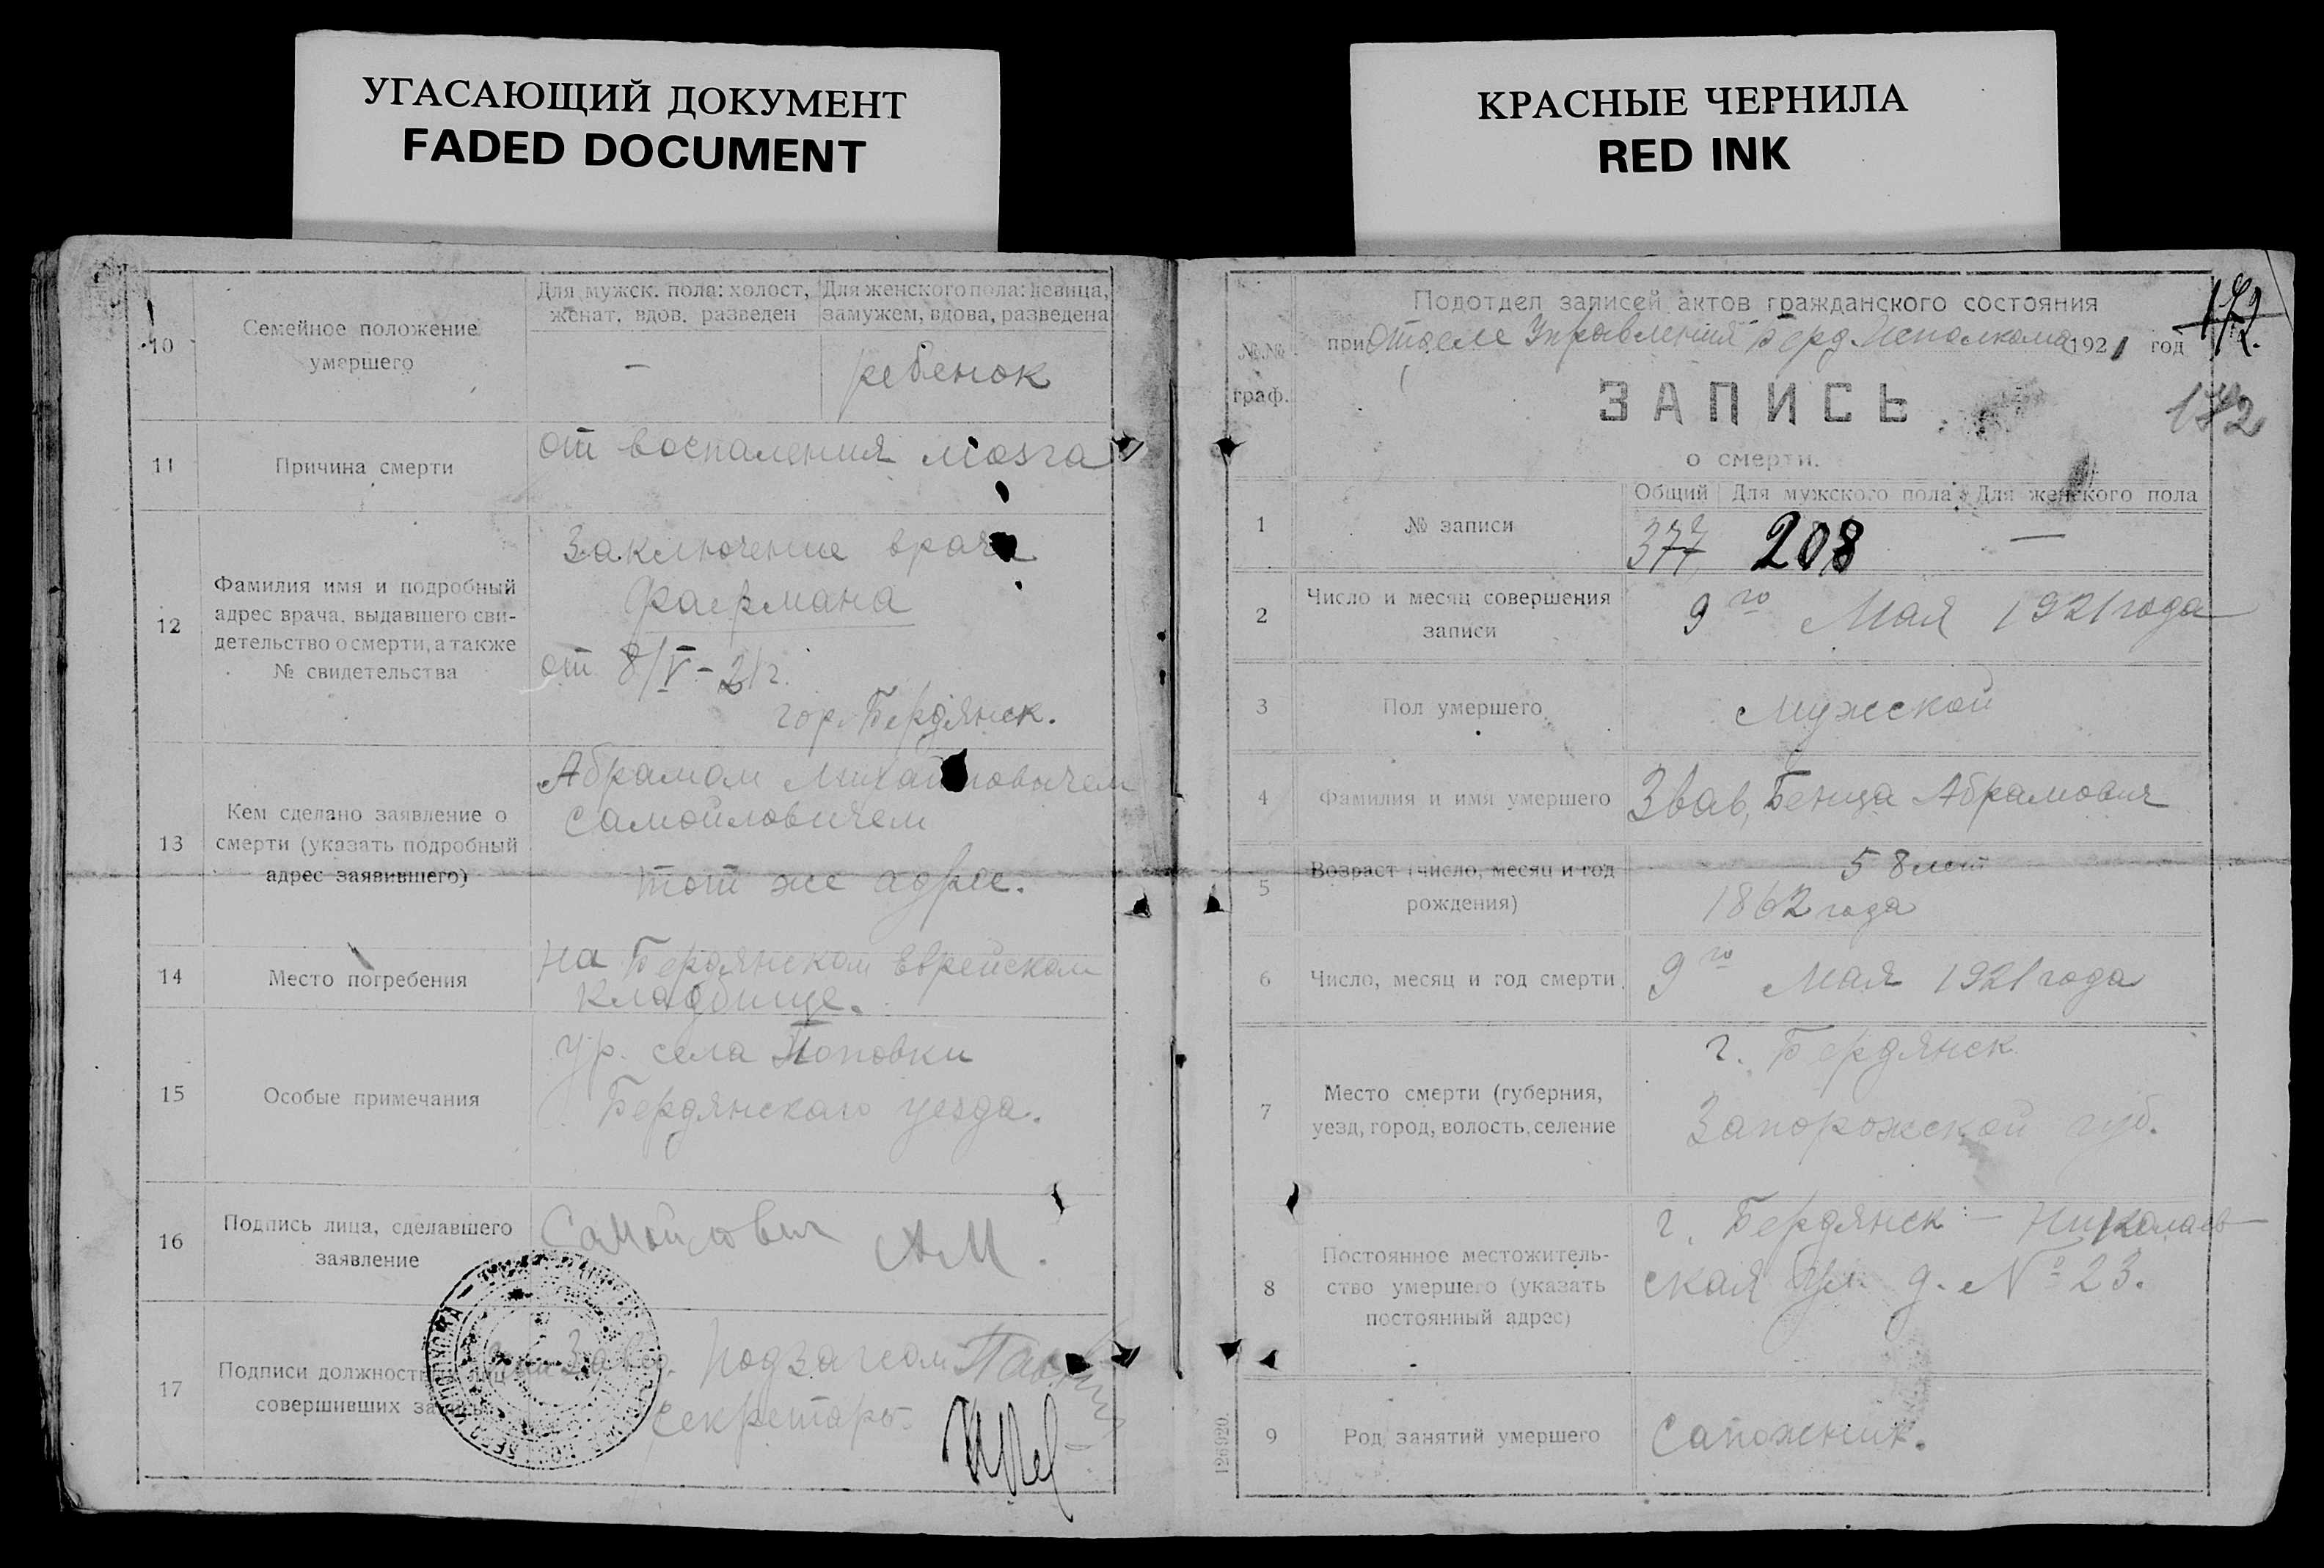 УГАСАЮЩИЙ ДОКУМЕНТ
FADED DOCUMENT
КРАСНЫЕ ЧЕРНИЛА
RED INK
10
Семейное положение
умершего
Для мужск. пола: холост,
женат, вдов, разведен
Для женского пола: девица,
замужем, вдова, разведена
—
ребенок
11
Причина смерти
от воспаления мозга
12
Фамилия имя и подробный
адрес врача, выдавшего сви-
детельство о смерти, а также
№ свидетельства
Заключение врача
Фаермана
от 8/V-21г.
гор. Бердянск.
13
Кем сделано заявление о
смерти (указать подробный
адрес заявившего)
Абрамом Михайловичем
Самойловичем
тот же адрес.
14
Место погребения
На Бердянском Еврейском
кладбище.
15
Особые примечания
ур. села Поповки
Бердянского уезда.
16
Подпись лица, сделавшего
заявление
Самойлович АМ.
17
Подписи должностных лиц
совершивших запись
Завед. Подзагсом
Секретарь
Подотдел записей актов гражданского состояния
при Отделе Управления Берд. Исполкома 1921 год
172
№.№
граф.
ЗАПИСЬ
172
о смерти.
1
№ записи
Общий
Для мужского пола
Для женского пола
377
208
—
2
Число и месяц совершения
записи
9го Мая 1921 года
3
Пол умершего
мужской
4
Фамилия и имя умершего
Звав, Бенца Абрамович
5
Возраст (число, месяц и год
рождения)
58 лет
1862 года
6
Число, месяц и год смерти
9го Мая 1921 года
7
Место смерти (губерния,
уезд, город, волость, селение
г. Бердянск
Запорожской губ.
8
Постоянное местожитель-
ство умершего (указать
постоянный адрес)
г. Бердянск – Николаев-
ская ул. д. № 23.
9
Род занятий умершего
Сапожник.
126920.